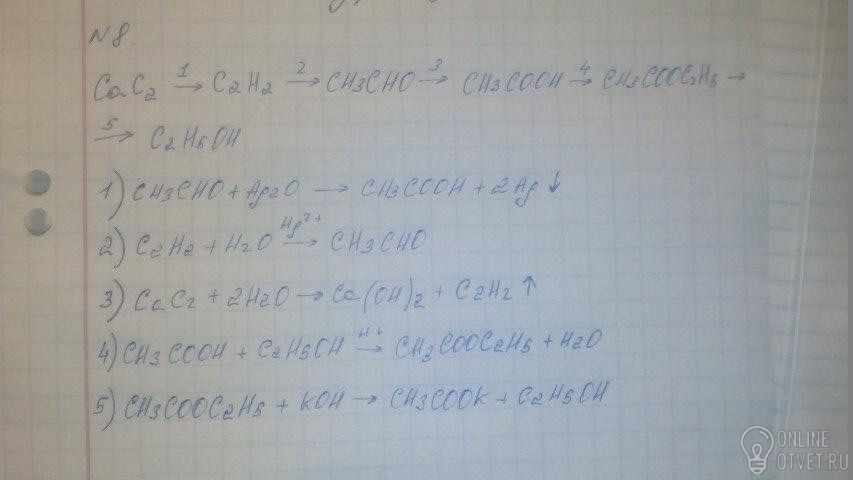 №8.
CaC2 1→ C2H2 2→ CH3CHO 3→ CH3COOH 4→ CH3COOC2H5 →
5→ C2H5OH
1) CH3CHO + Ag2O → CH3COOH + 2Ag ↓
2) C2H2 + H2O Hg2+→ CH3CHO
3) CaC2 + 2H2O → Ca(OH)2 + C2H2 ↑
4) CH3COOH + C2H5OH H+→ CH3COOC2H5 + H2O
5) CH3COOC2H5 + KOH → CH3COOK + C2H5OH
ONLINE
OTVET.RU